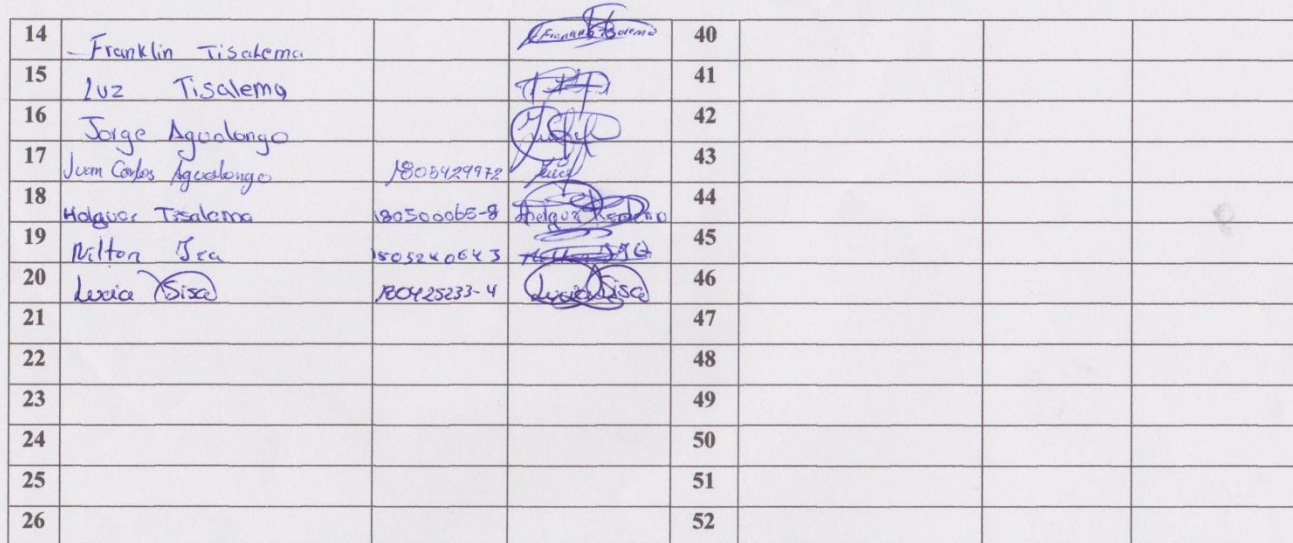 14 Franklin Tisalema 40
15 Luz Tisalema 41
16 Jorge Agualongo 42
17 Juan Carlos Agualongo 1805429972 43
18 Holguer Tisalema 180500065-8 Holguer 44
19 Nilton 1803240643 45
20 Lucia Sisa 180425233-4 Lucia Sisa 46
21 47
22 48
23 49
24 50
25 51
26 52